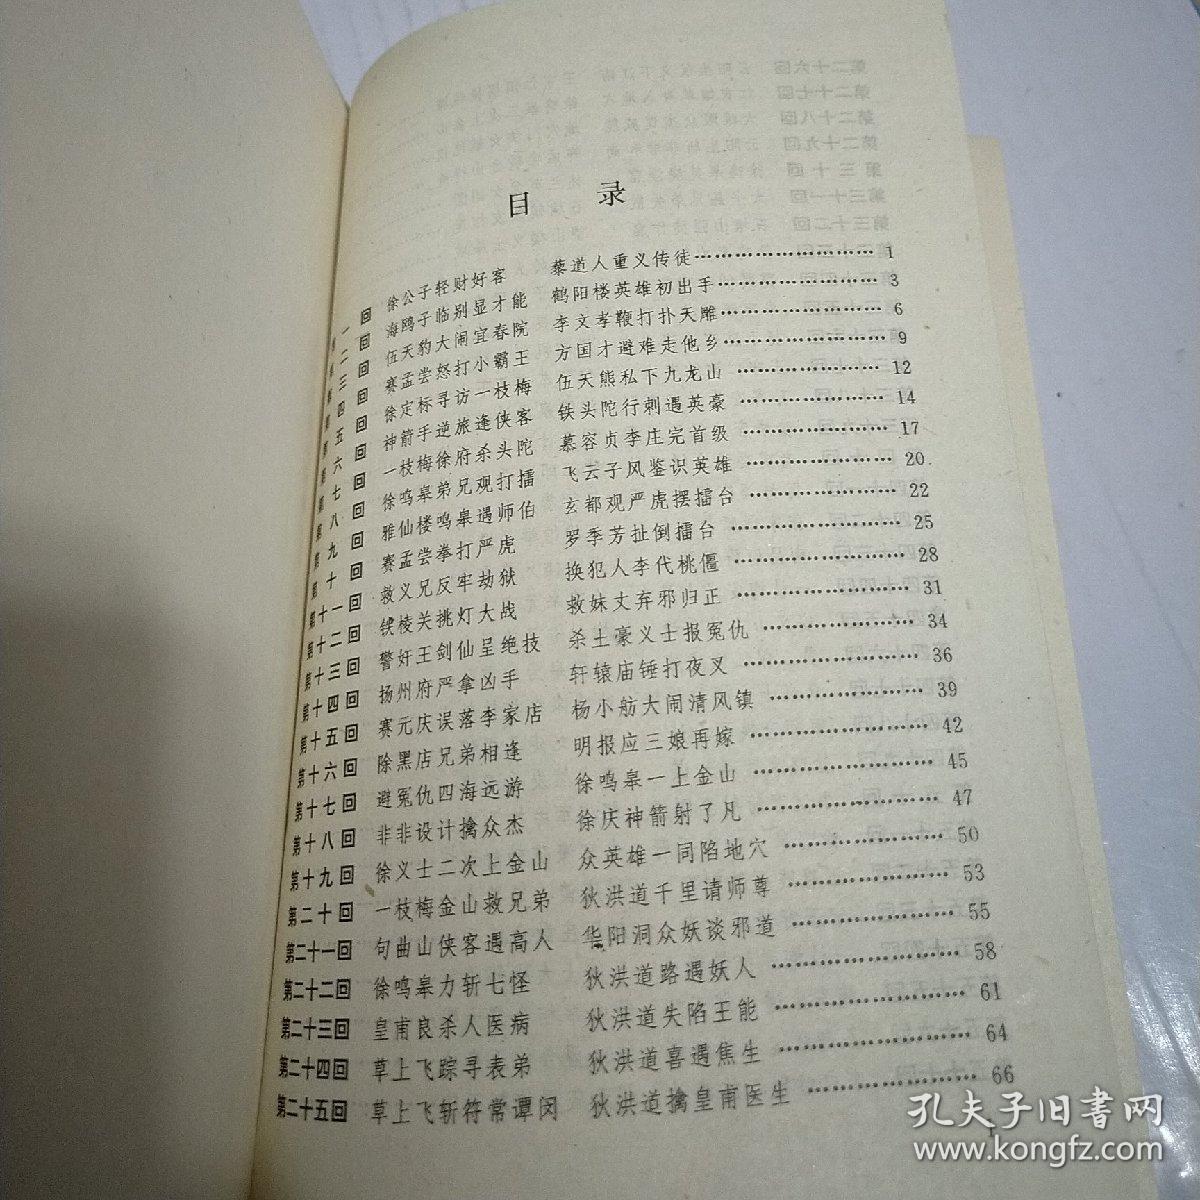 目 录
第一回 徐公子轻财好客 藜道人重义传徒………………………1
第二回 海鸥子临别显才能 鹤阳楼英雄初出手………………………3
第三回 伍天豹大闹宜春院 李文孝鞭打扑天雕………………………6
第四回 赛孟尝怒打小霸王 方国才避难走他乡………………………9
第五回 徐定标寻访一枝梅 伍天熊私下九龙山………………………12
第六回 神箭手逆旅逢侠客 铁头陀行刺遇英豪………………………14
第七回 一枝梅徐府杀头陀 慕容贞李庄完首级………………………17
第八回 徐鸣皋弟兄观打擂 飞云子风鉴识英雄………………………20
第九回 雅仙楼鸣皋遇师伯 玄都观严虎摆擂台………………………22
第十回 赛孟尝拳打严虎 罗季芳扯倒擂台………………………25
第十一回 救义兄反牢劫狱 换犯人李代桃僵………………………28
第十二回 锁棱关挑灯大战 救妹丈弃邪归正………………………31
第十三回 警奸王剑仙呈绝技 杀土豪义士报冤仇………………………34
第十四回 扬州府严拿凶手 轩辕庙锤打夜叉………………………36
第十五回 赛元庆误落李家店 杨小舫大闹清风镇………………………39
第十六回 除黑店兄弟相逢 明报应三娘再嫁………………………42
第十七回 避冤仇四海远游 徐鸣皋一上金山………………………45
第十八回 非非设计擒众杰 徐庆神箭射了凡………………………47
第十九回 徐义士二次上金山 众英雄一同陷地穴………………………50
第二十回 一枝梅金山救兄弟 狄洪道千里请师尊………………………53
第二十一回 句曲山侠客遇高人 华阳洞众妖谈邪道………………………55
第二十二回 徐鸣皋力斩七怪 狄洪道路遇妖人………………………58
第二十三回 皇甫良杀人医病 狄洪道失陷王能………………………61
第二十四回 草上飞踪寻表弟 狄洪道喜遇焦生………………………64
第二十五回 草上飞斩符常谭闵 狄洪道擒皇甫医生………………………66
1
孔夫子旧书网
www.kongfz.com